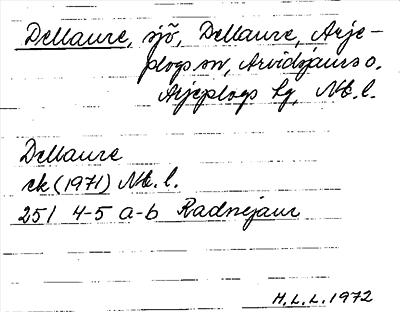 Dellaure, sjö, Dellaure, Arje-
plogs sn, Arvidsjaurs o.
Arjeplogs tg, Nb. l.
Dellaure
ek (1971) Nb. l.
251 4-5 a-b Radnejaur
H.L.L. 1972